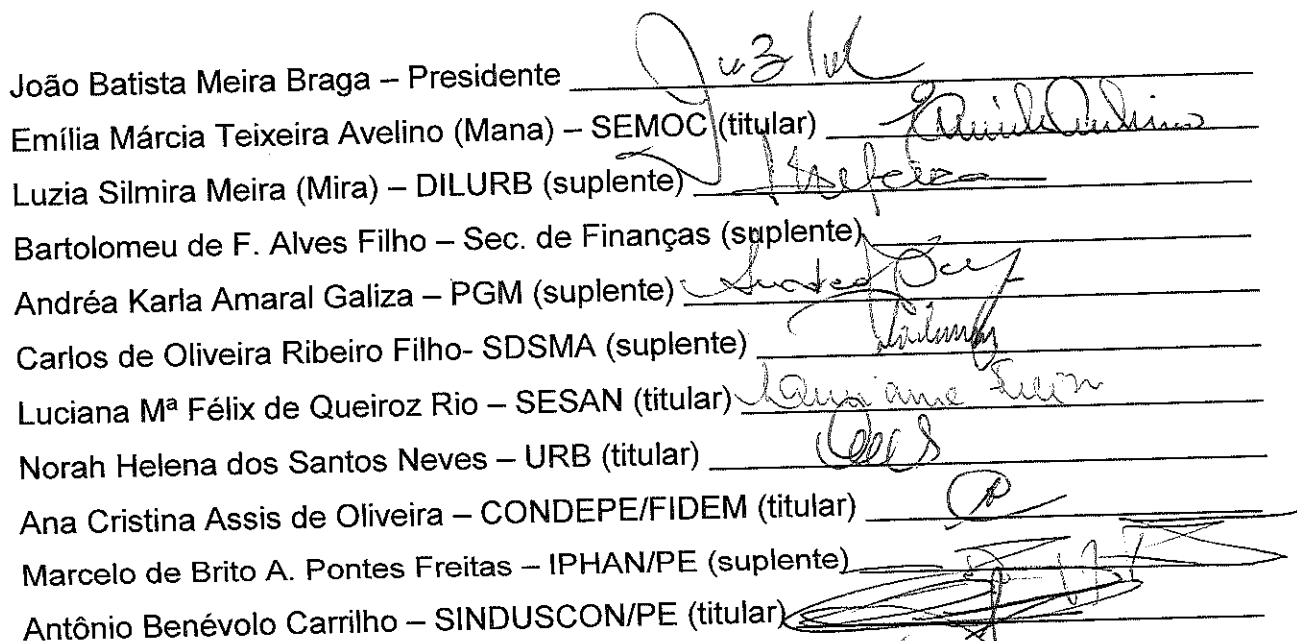 João Batista Meira Braga – Presidente
Emília Márcia Teixeira Avelino (Mana) – SEMOC (titular)
Luzia Silmira Meira (Mira) – DILURB (suplente)
Bartolomeu de F. Alves Filho – Sec. de Finanças (suplente)
Andréa Karla Amaral Galiza – PGM (suplente)
Carlos de Oliveira Ribeiro Filho- SDSMA (suplente)
Luciana Mª Félix de Queiroz Rio – SESAN (titular)
Norah Helena dos Santos Neves – URB (titular)
Ana Cristina Assis de Oliveira – CONDEPE/FIDEM (titular)
Marcelo de Brito A. Pontes Freitas – IPHAN/PE (suplente)
Antônio Benévolo Carrilho – SINDUSCON/PE (titular)